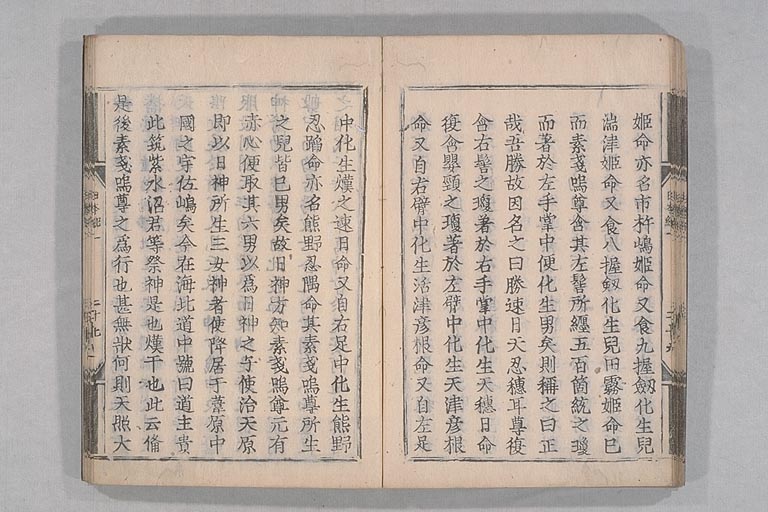 姫命亦名市杵嶋姫命又食九握劔化生兒
湍津姫命又食八握劔化生兒田霧姫命已
而素戔嗚尊含其左髻所纒五百箇統之瓊
而著於左手掌中便化生男矣則稱之曰正
哉吾勝故因名之曰勝速日天忍穗耳尊復
含右髻之瓊著於右手掌中化生天穗日命
復含嬰頸之瓊著於左臂中化生天津彦根
命又自右臂中化生活津彦根命又自左足
中化生熯之速日命又自右足中化生熊野
忍蹈命亦名熊野忍隅命其素戔嗚尊所生
之兒皆已男矣故日神方知素戔嗚尊元有
赤心便取其六男以爲日神之子使治天原
即以日神所生三女神者使降居于葦原中
國之宇佐嶋矣今在海北道中號曰道主貴
此筑紫水沼君等祭神是也熯干也此云備
是後素戔嗚尊之爲行也甚無狀何則天照大